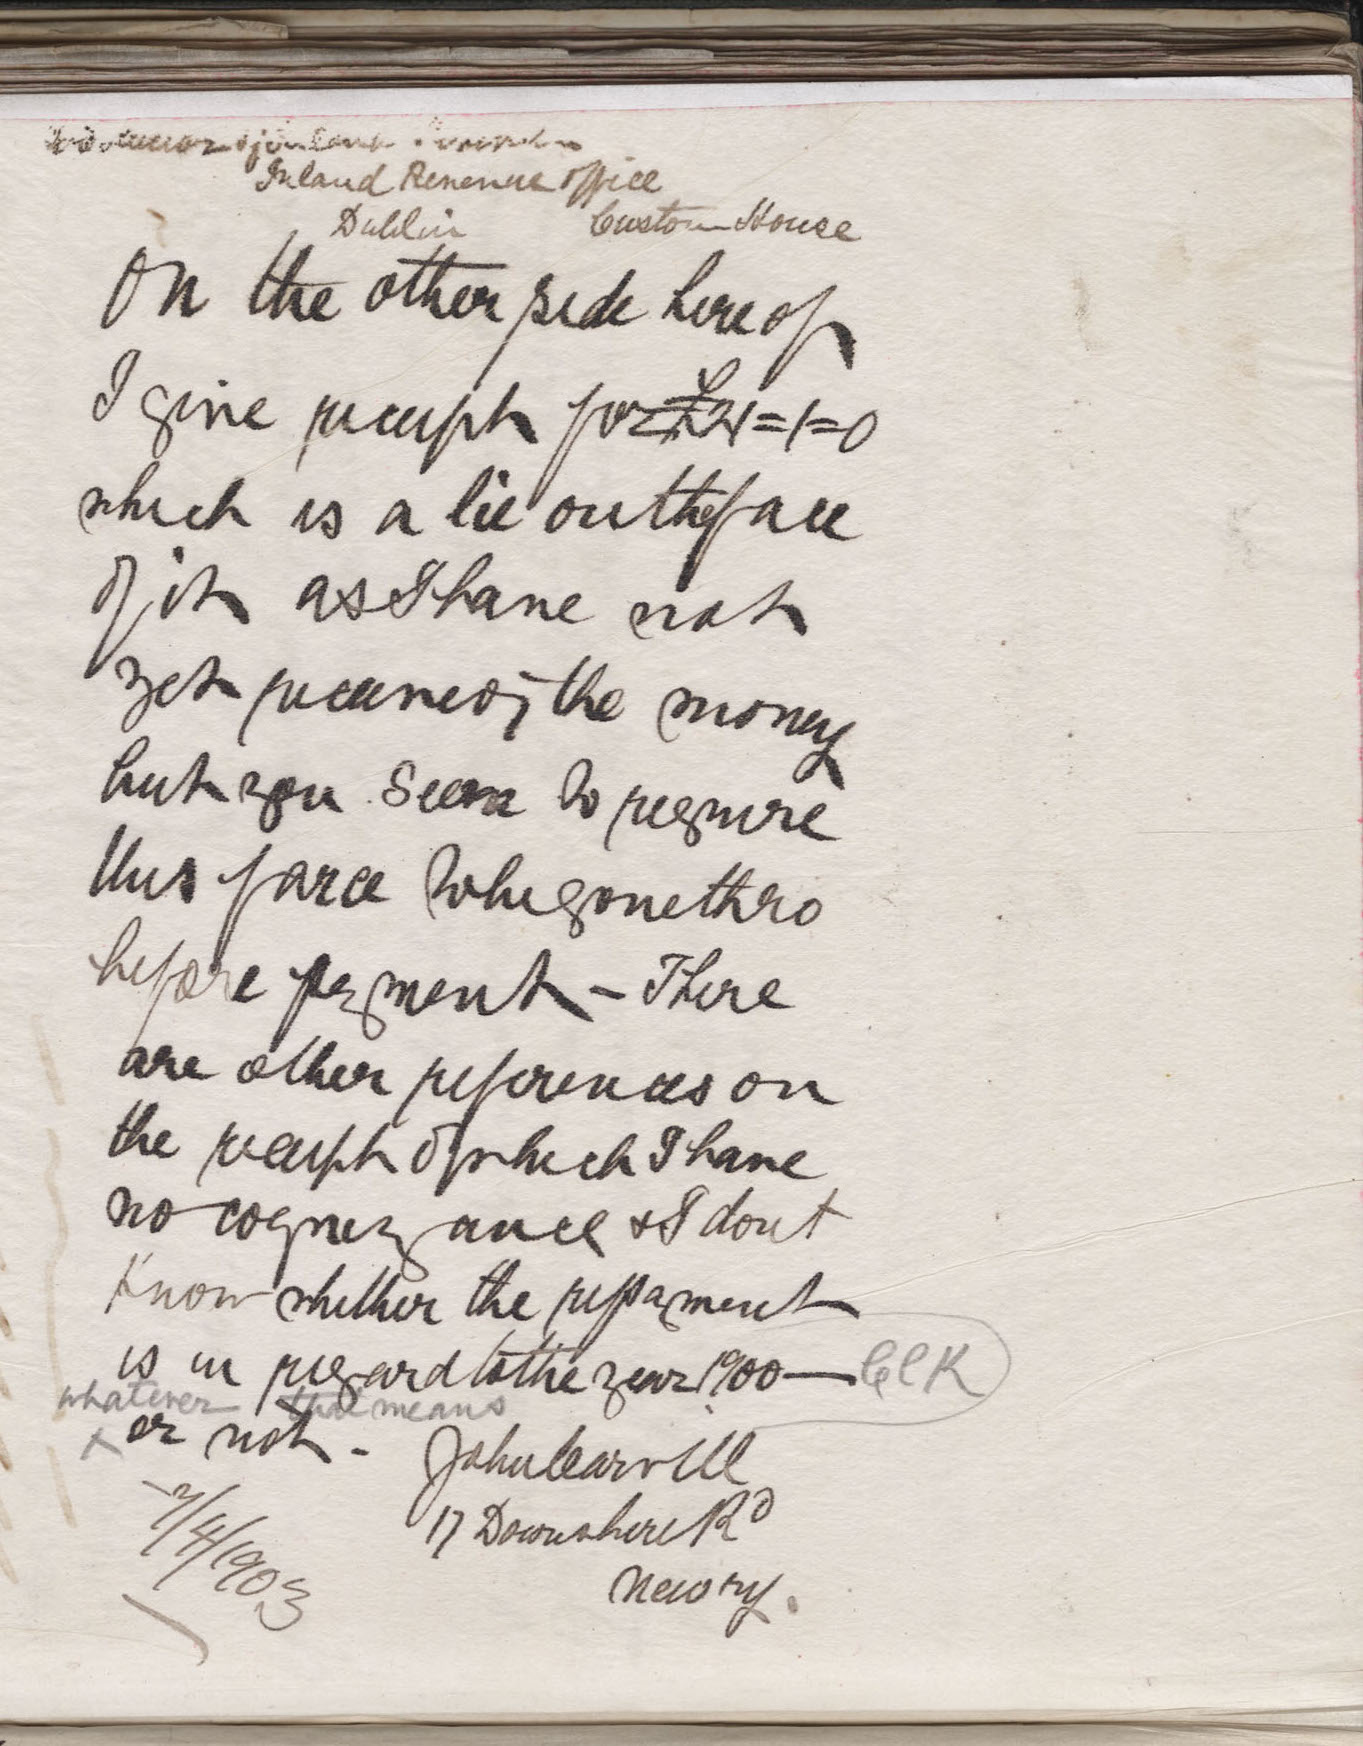 Inland Revenue office
Dublin Custom House
On the other side hereof
I give receipt for £21=1=0
which is a lie on the face
of it as I have not
yet received the money
but you seem to require
this farce to be gone thro
before payment - There
are other references on
the receipt of which I have
no cognizance & I dont
Know whether the repayment
is in regard to the year 1900 — ClK
whatever that means
x or not - John Carvill
17 Downshire Rd
7/4/1903
Newry.